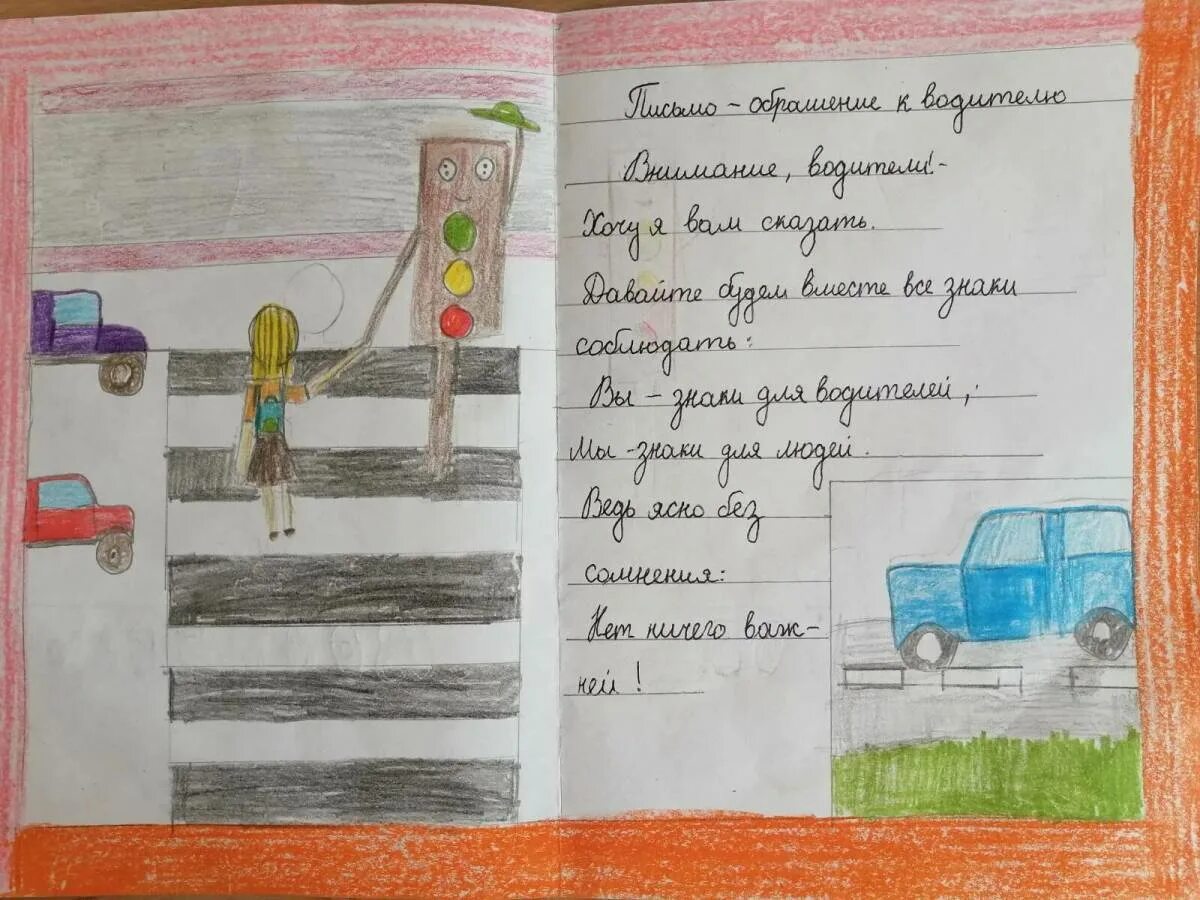 Письмо - обращение к водителю
Внимание, водители! -
Хочу я вам сказать.
Давайте будем вместе все знаки
соблюдать:
Вы - знаки для водителей,;
Мы - знаки для людей.
Ведь ясно без
сомнения:
Нет ничего важ-
ней!